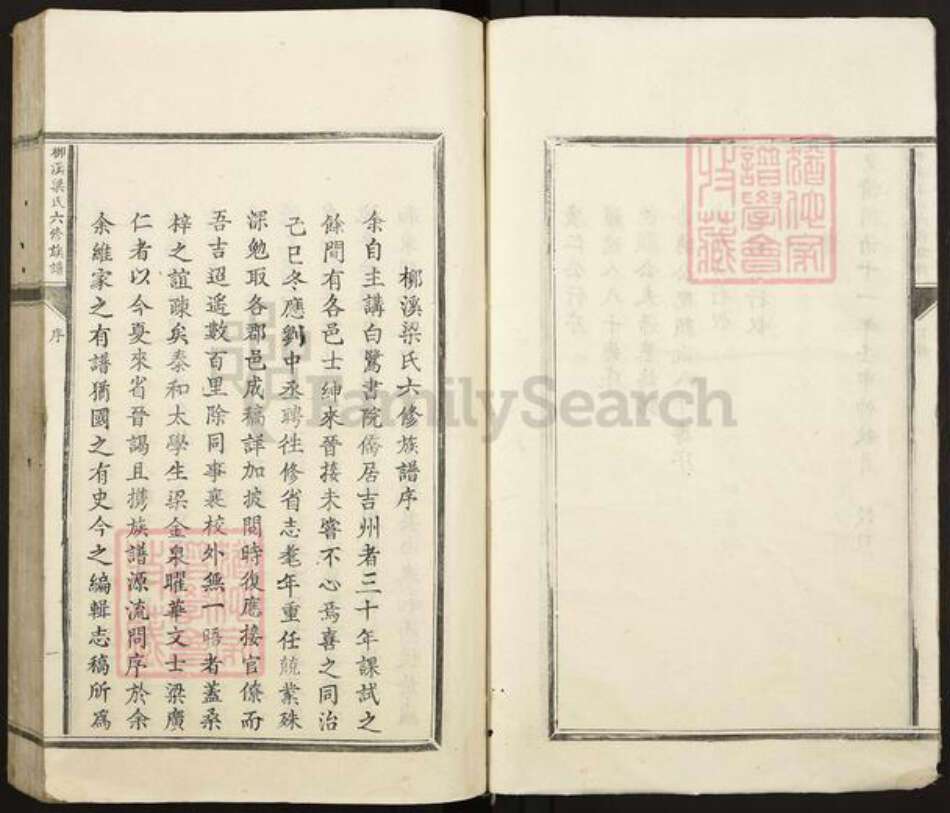 柳溪梁氏六修族譜序
余自主講白鷺書院僑居吉州者三十年課試之
餘間有各邑士紳來晉接未嘗不心焉喜之同治
己巳冬應劉中丞聘徃修省志耄年重任兢業殊
深勉取各郡邑成稿詳加披閱時復應接官僚而
吾吉迢遙數百里除同事襄校外無一晤者蓋桑
梓之誼踈矣泰和太學生梁金泉曜華文士梁廣
仁者以今夏來省晉謁且携族譜源流問序於余
余維家之有譜猶國之有史今之編輯志稿所爲
柳溪梁氏六修族譜
序
FamilySearch